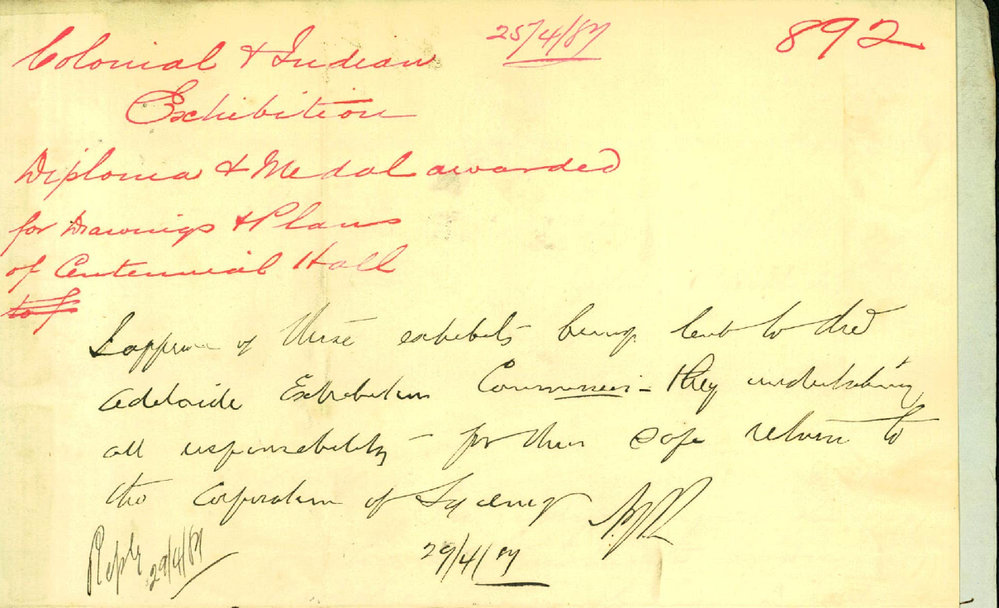 25/4/87
892
Colonial & Indian
Exhibition
Diploma & Medal awarded
for Drawings & Plans
of Centennial Hall
I approve of these exhibits being lent to the
Adelaide Exhibition Commission - they undertaking
all responsibility for their safe return to
the Corporation of Sydney
29/4/87
Reply 29/4/87